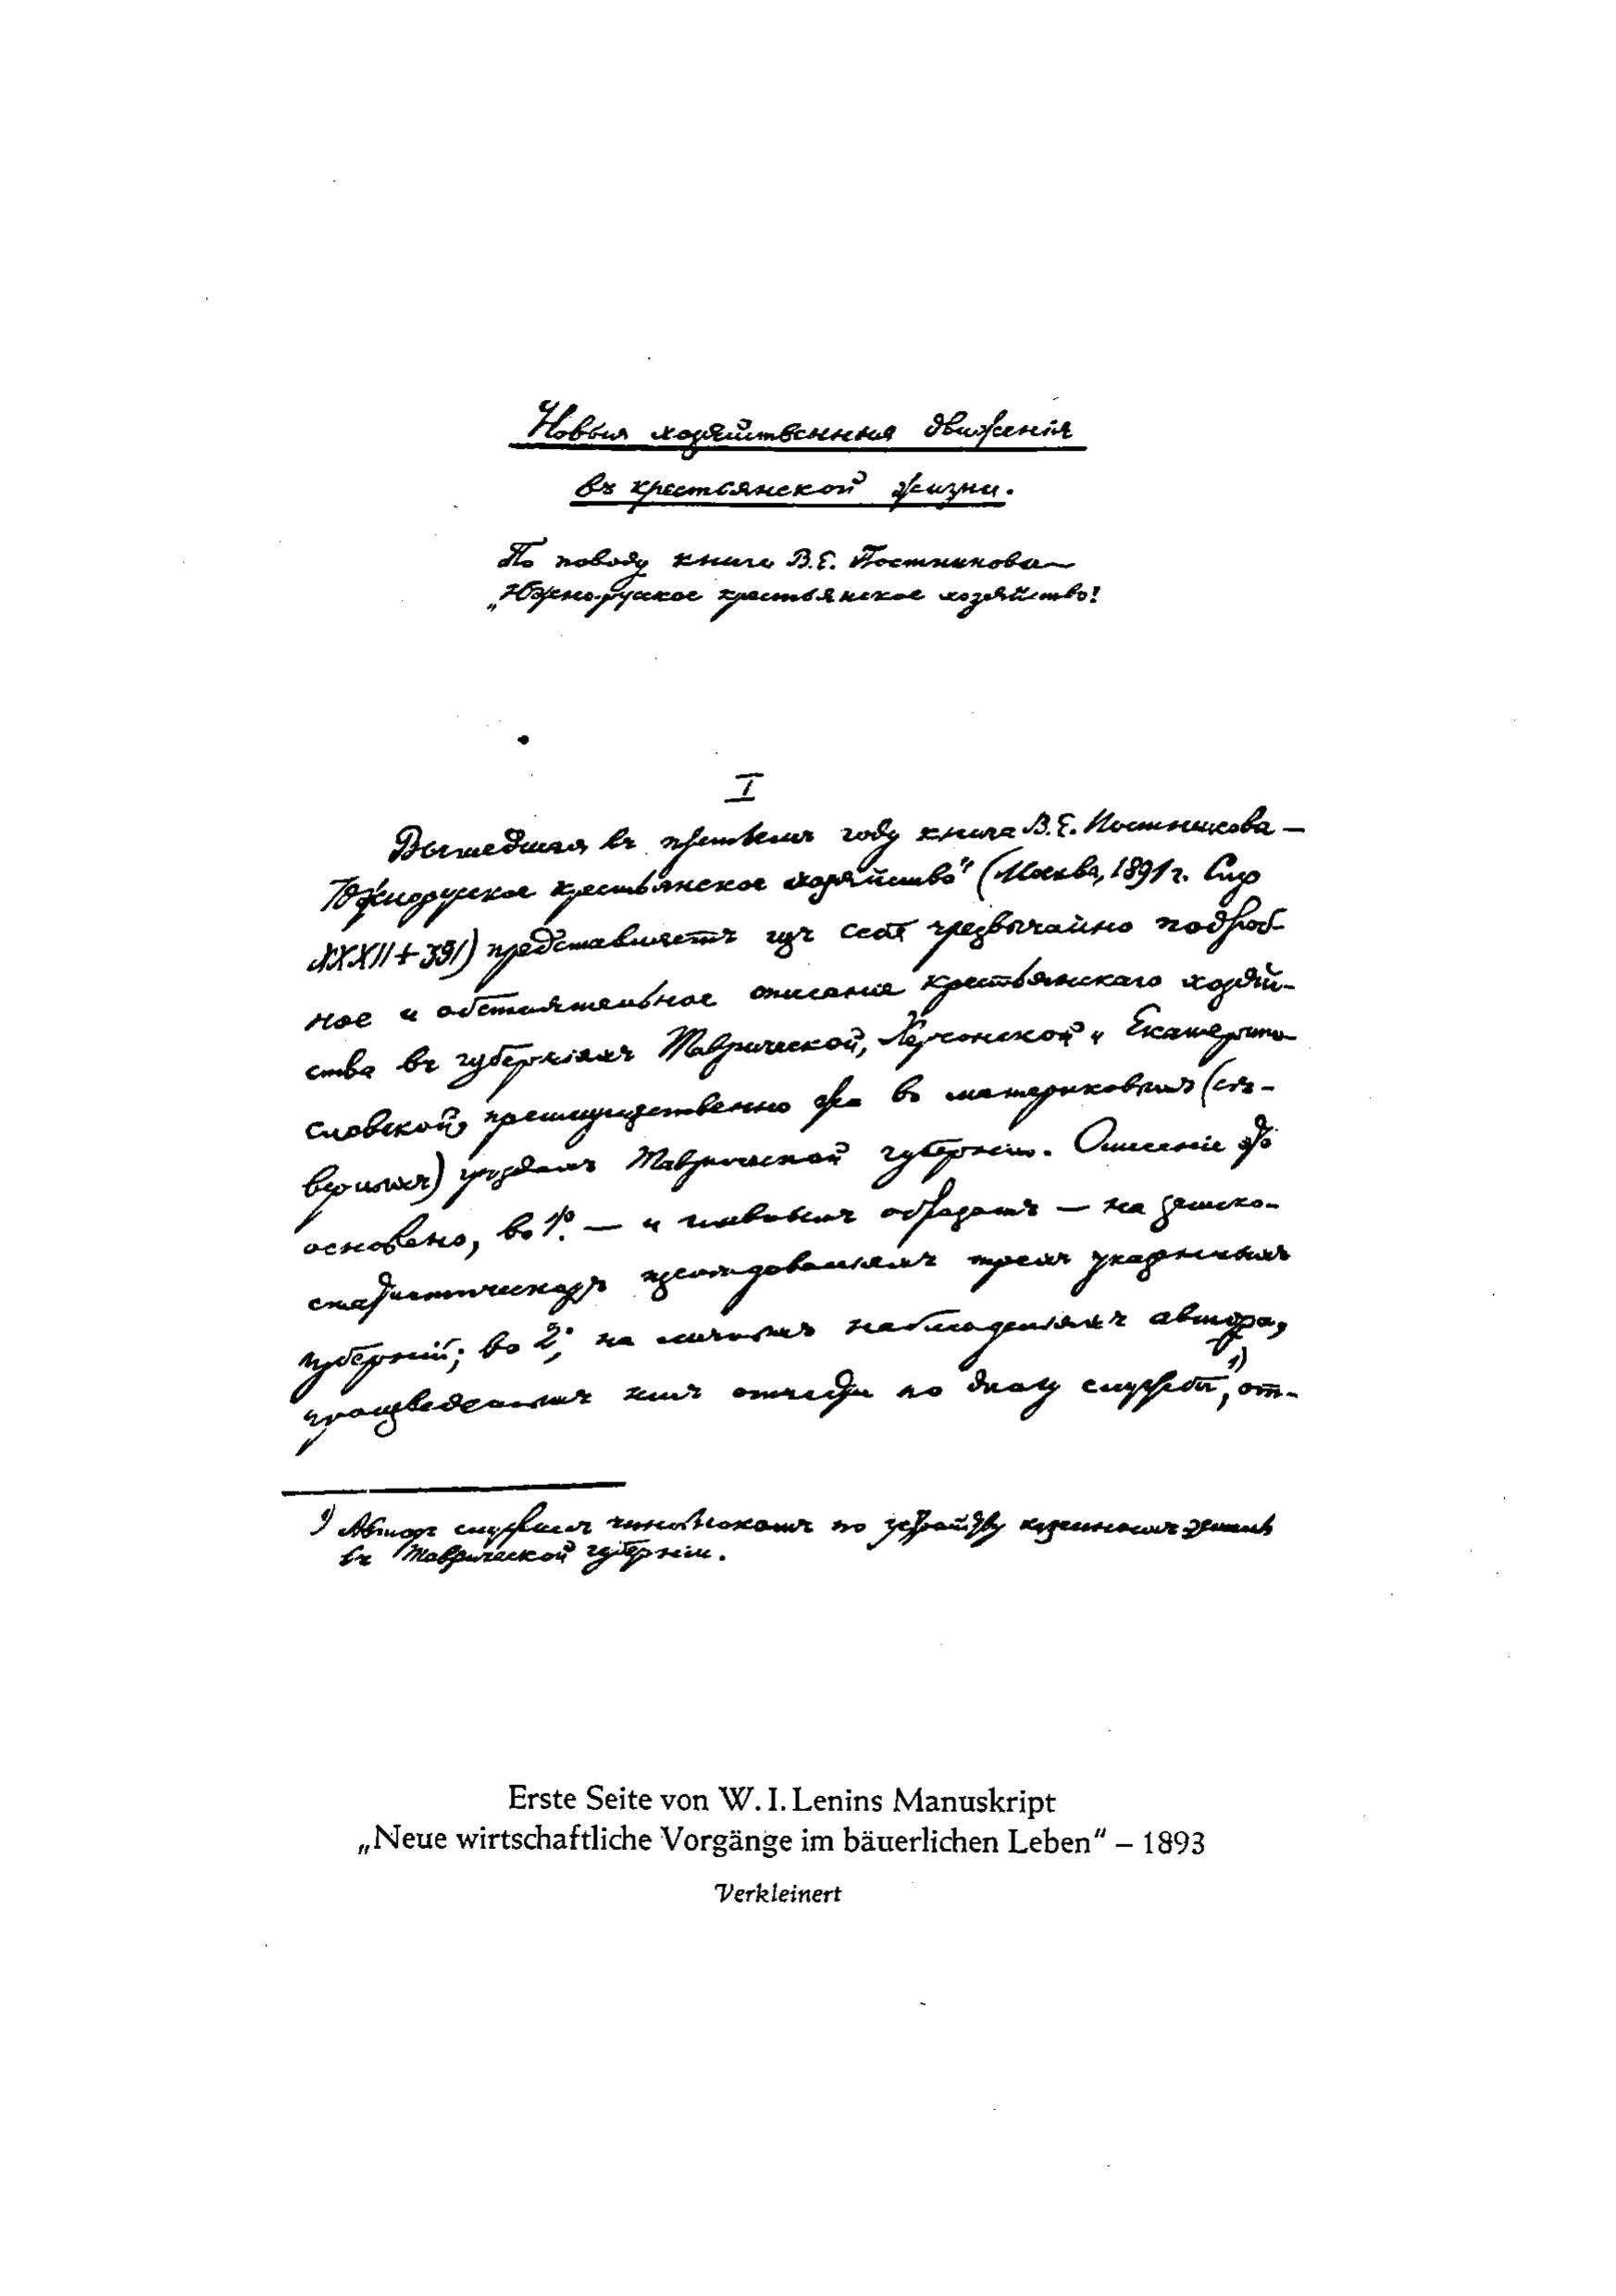 Новыя хозяйственныя движенія
въ крестьянской жизни.
По поводу книги В.Е. Постникова —
„Южно-русское крестьянское хозяйство".
I
Вышедшая въ третьемъ году книга В.Е. Постникова —
Южнорусское крестьянское хозяйство" (Москва, 1891 г. Стр
XXXII+391) представляетъ изъ себя чрезвычайно подроб-
ное и обстоятельное описаніе крестьянскаго хозяй-
ства въ губерніяхъ Таврической, Херсонской и Екатерино
славской, преимущественно же въ материковыхъ (сѣ-
верныхъ) уѣздахъ Таврической губерніи. Описаніе это
основано, во 1º. — и главнымъ образомъ — на земско-
статистическихъ изслѣдованіяхъ трехъ указанныхъ
губерній; во 2º, на личныхъ наблюденіяхъ автора,
произведенныхъ имъ отчасти по долгу службы ¹⁾, от-
¹⁾ Авторъ служилъ чиновникомъ по устройству казенныхъ земель
въ Таврической губерніи.
Erste Seite von W. I. Lenins Manuskript
„Neue wirtschaftliche Vorgänge im bäuerlichen Leben" – 1893
Verkleinert